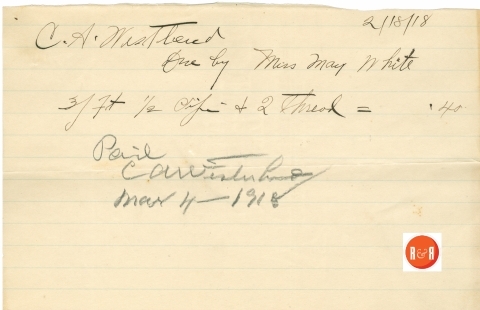 2/18/18
C. A. Westlund
Due by Miss May White
3/ Ft 1/2 Pipe & 2 Thread = .40
Paid
C A Westerlund
Mar 4 - 1918
R & R